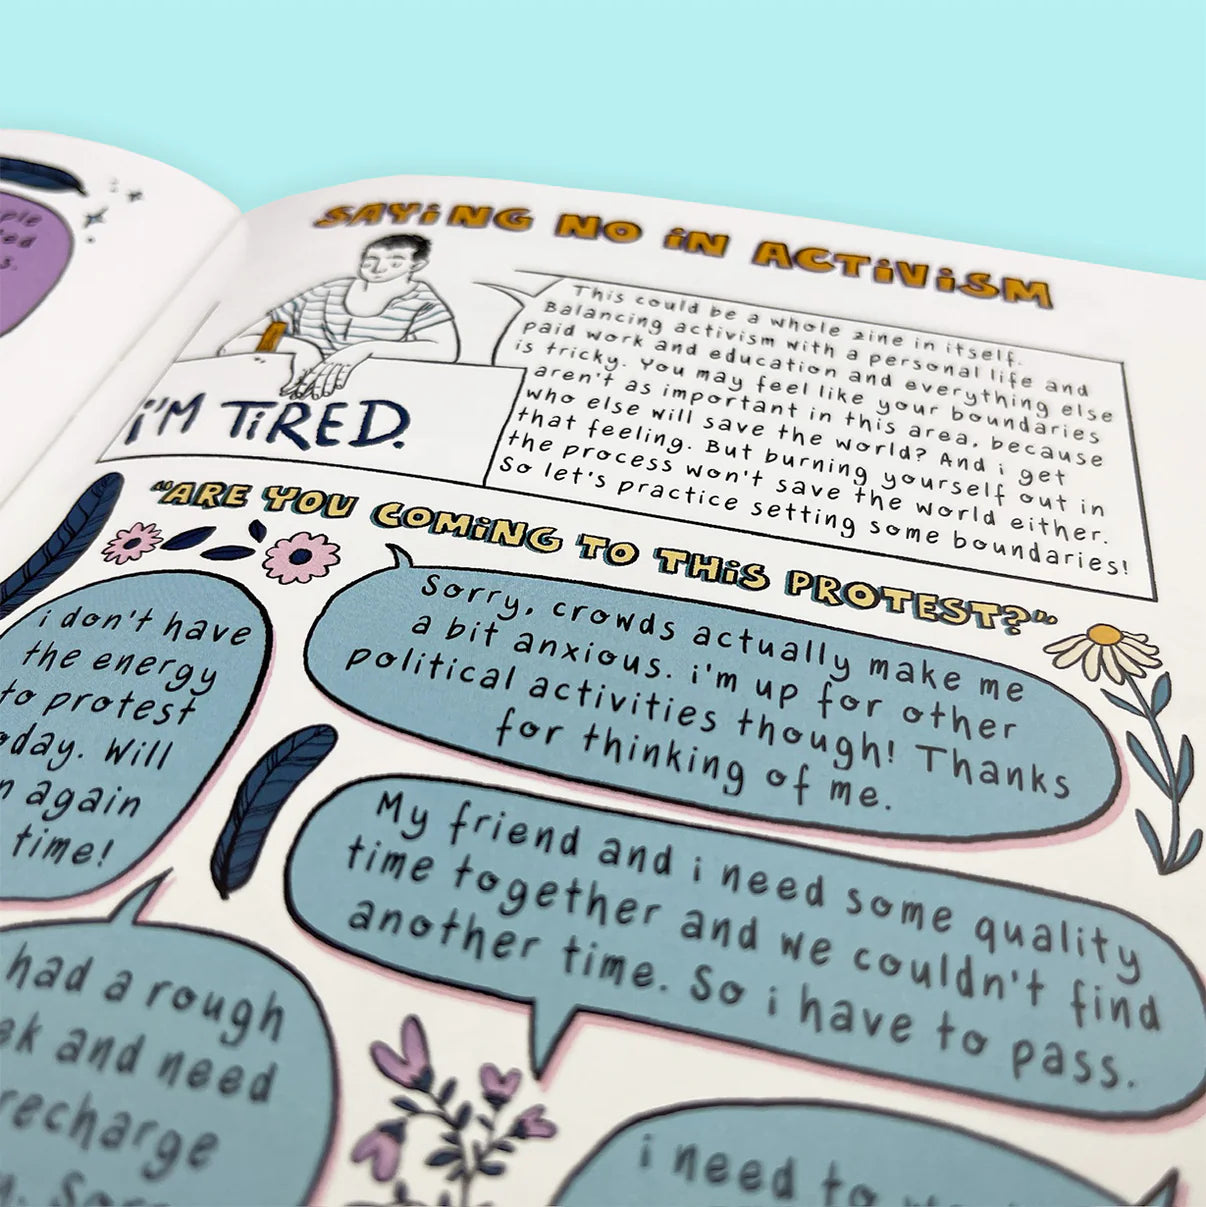 SAYiNG NO iN ACTiViSM
This could be a whole zine in itself.
Balancing activism with a personal life and
paid work and education and everything else
is tricky. You may feel like your boundaries
aren't as important in this area, because
who else will save the world? And i get
that feeling. But burning yourself out in
the process won't save the world either.
So let's practice setting some boundaries!
i'M TiRED.
"ARE YOU COMiNG TO THiS PROTEST?"
i don't have
the energy
to protest
. Will
again
time!
Sorry, crowds actually make me
a bit anxious. i'm up for other
political activities though! Thanks
for thinking of me.
My friend and i need some quality
time together and we couldn't find
another time. So i have to pass.
had a rough
and need
recharge
i need to